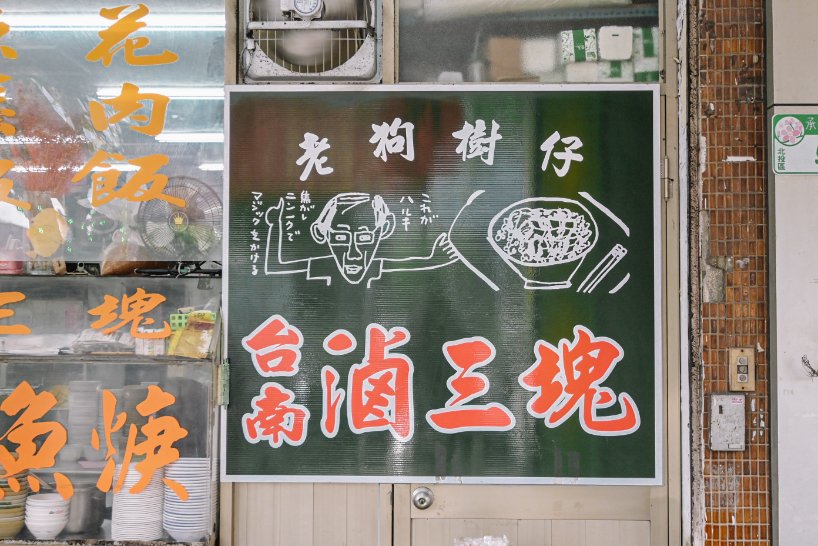 花肉飯
三塊
魚焿
老狗樹仔
これが
ハルキ
焦がし
ニンニクで
マジックをかける
台南
滷三塊
北投區
承